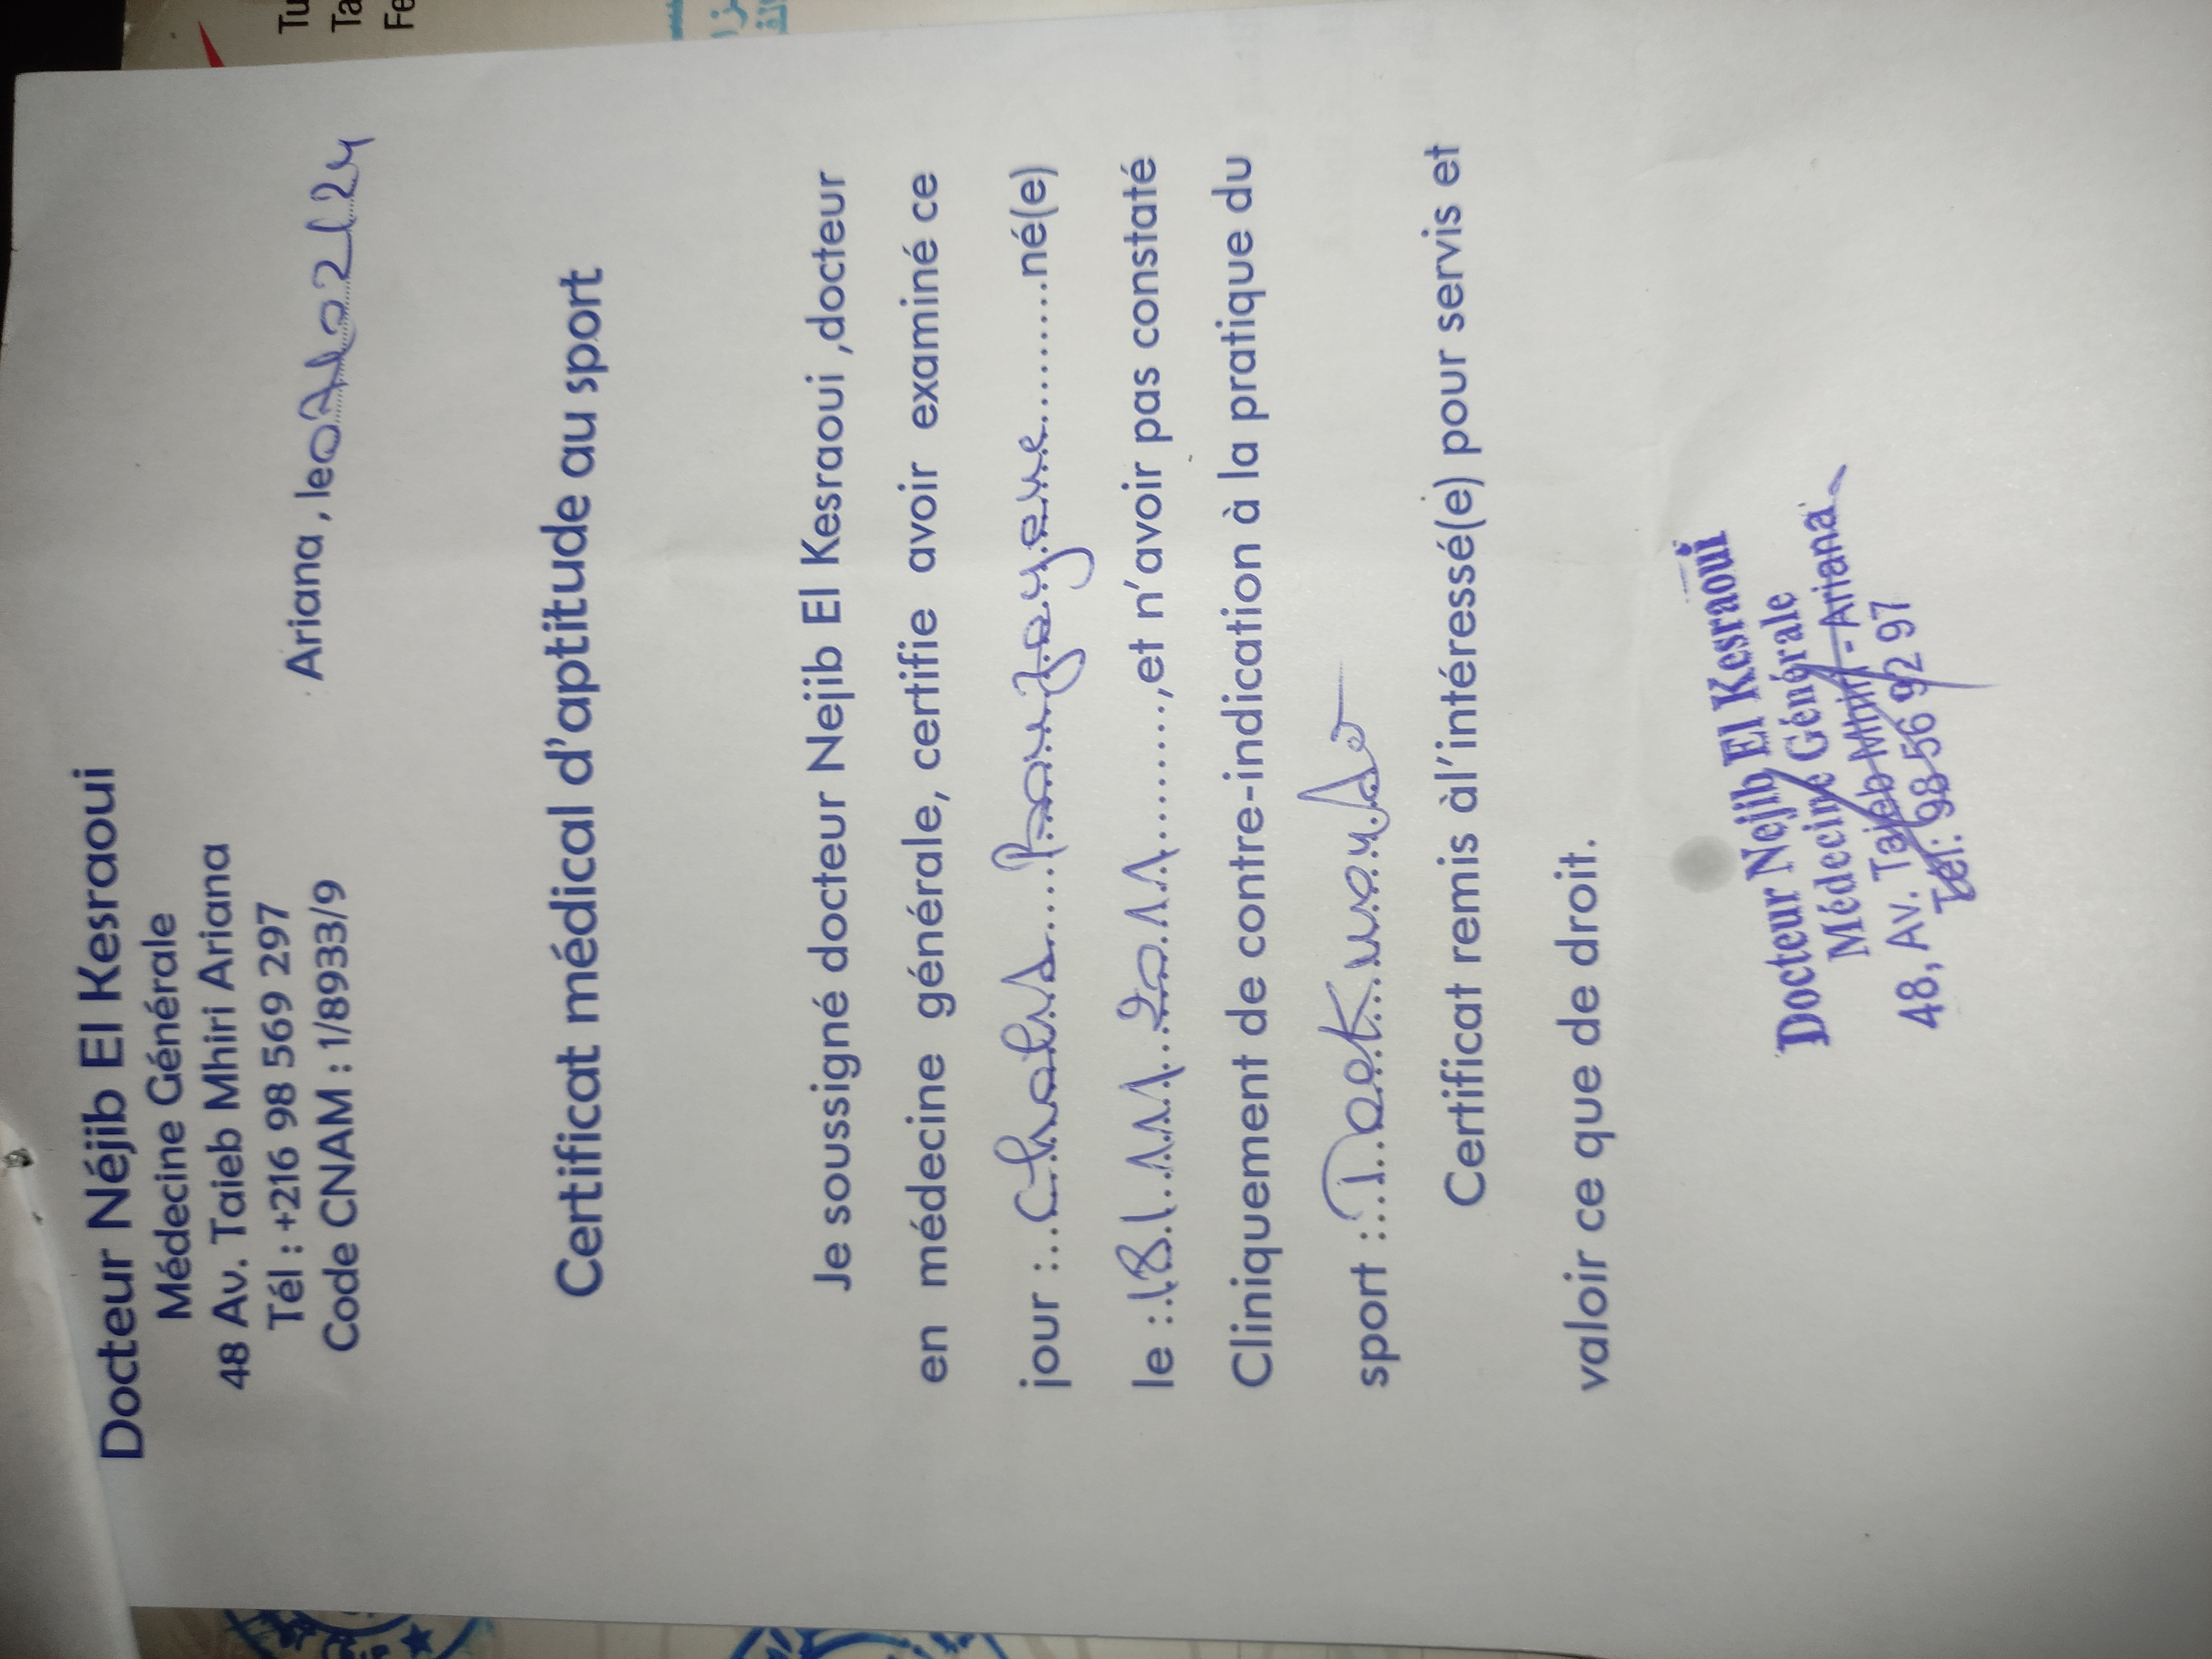 Docteur Néjib El Kesraoui
Médecine Générale
48 Av. Taieb Mhiri Ariana
Tél : +216 98 569 297
Code CNAM : 1/8933/9
Ariana , le 07/02/24
Certificat médical d'aptitude au sport
Je soussigné docteur Nejib El Kesraoui ,docteur
en médecine générale, certifie avoir examiné ce
jour :..........né(e)
le :.18/11/2011..........,et n'avoir pas constaté
Cliniquement de contre-indication à la pratique du
sport : Taekwondo
Certificat remis àl'intéressé(e) pour servis et
valoir ce que de droit.
Docteur Nejib El Kesraoui
Médecine Générale
48, Av. Taieb Mhiri - Ariana
Tél: 98 56 92 97
Tu
Ta
Fe